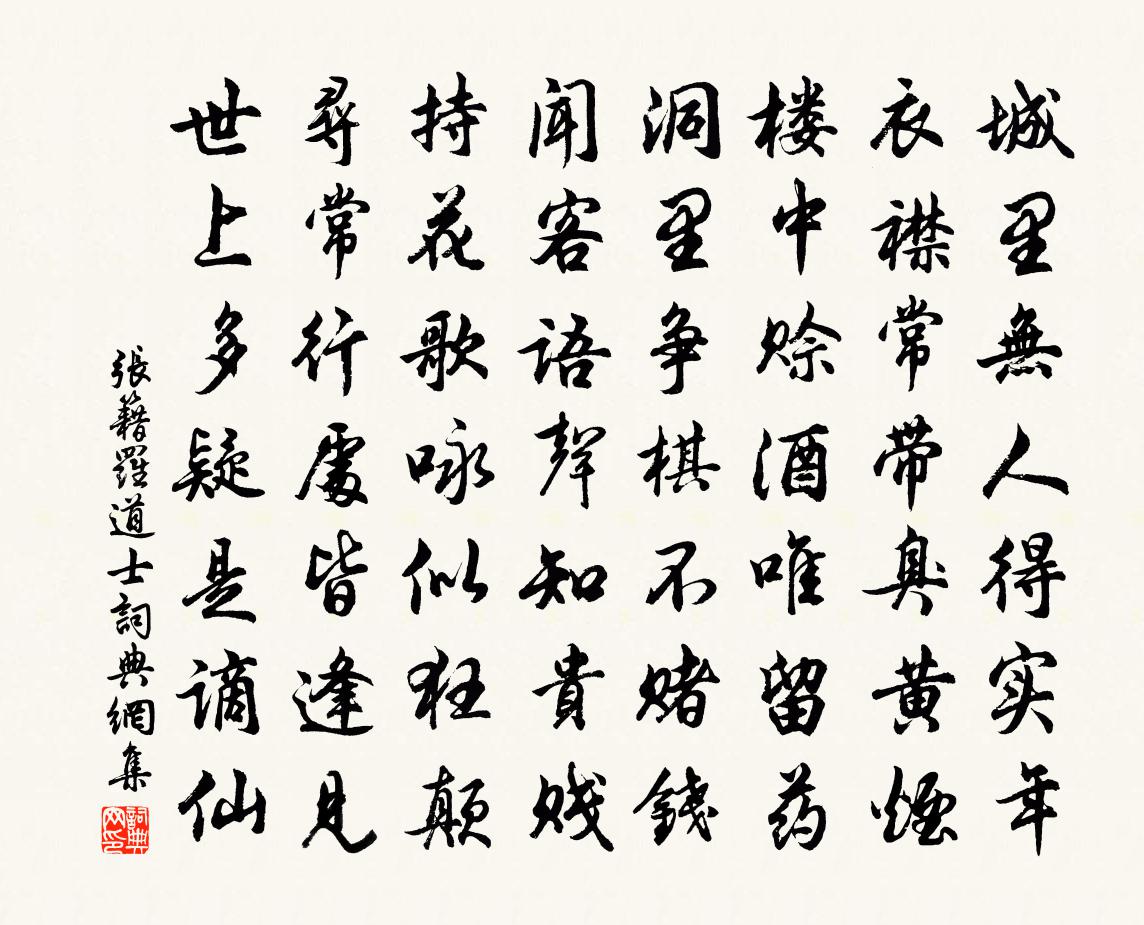 城里無人得实年
衣襟常带臭黄煙
楼中赊酒唯留药
洞里争棋不赌錢
闻客语声知貴贱
持花歌咏似狂颠
尋常行處皆逢見
世上多疑是谪仙
張籍羅道士詞典網集
詞典网印